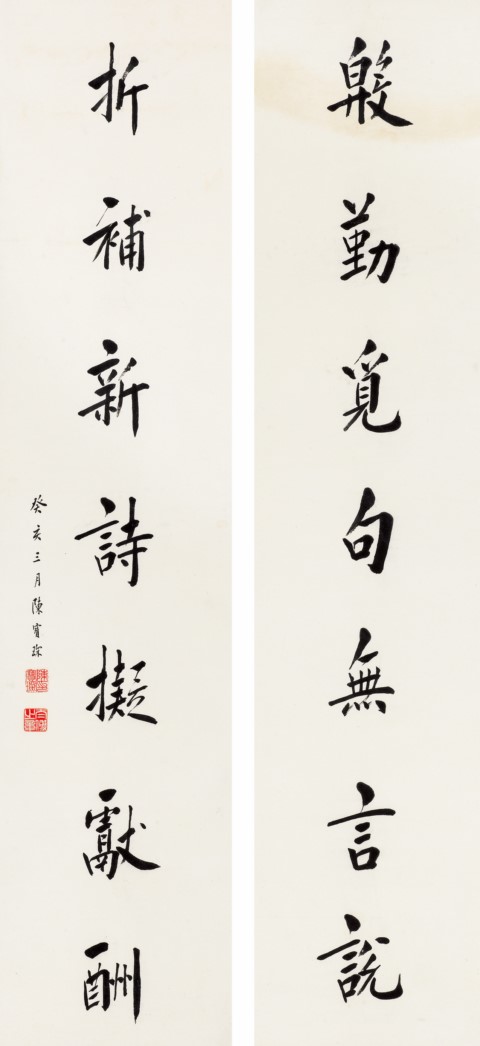 殷勤覓句無言說
折補新詩擬獻酬
癸亥三月陳寶琛